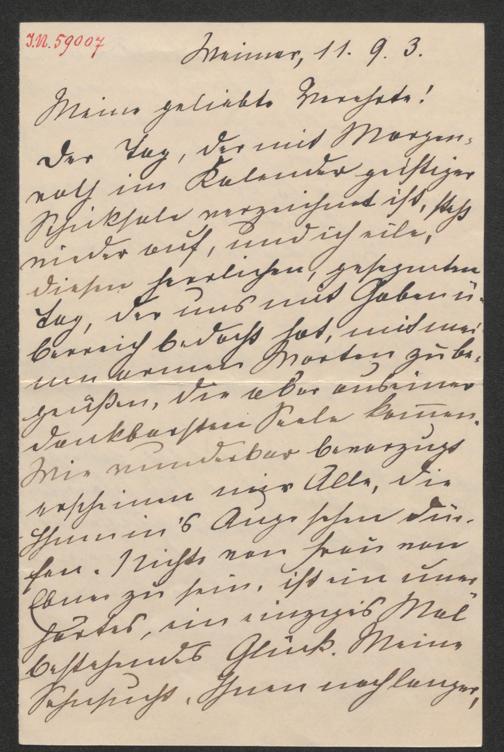 J.N. 59007
Weimar, 11. 9. 3.
Meine geliebte Verehrte!
Der Tag, der mit Morgen-
roth im Kalender geistiger
Schicksale verzeichnet ist, steht
wieder auf, und ich eile,
diesen herrlichen, gesegneten
Tag, der uns mit Gaben ü-
berreich bedacht hat, mit mei-
nen armen Worten zu be-
grüßen, die aber aus einer
dankbarsten Seele kommen.
Wie wunderbar bevorzugt
erscheinen mir Alle, die
Ihnen in's Auge sehen dür-
fen. Nichte von Frau von
Ebner zu sein, ist ein uner-
hörtes, ein einziges Mal
bestehendes Glück. Meine
Sehnsucht, Ihnen nach langer,